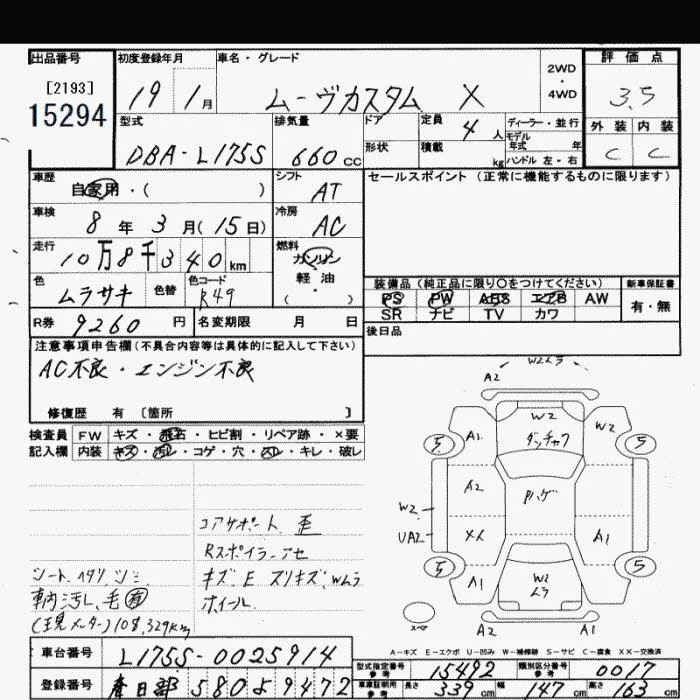 出品番号 初度登録年月 車名・グレード 2WD・4WD 評価点
[2193]
15294
19 1月 ムーヴカスタム X 3.5
型式 排気量 ドア 定員 4人 ディーラー・並行 外装 内装
モデル年式 年
DBA-L175S 660cc 形状 積載 kg ハンドル 左・右 C C
車歴 シフト セールスポイント(正常に機能するものに限ります)
自家用・( ) AT
車検 冷房
8年3月(15日) AC
走行 燃料
10万8千340km ガソリン
軽油
(・)
色 色替 色コード
ムラサキ R49
装備品(純正品に限り○をつけてください) 新車保証書
PS PW ABS エアB AW 有・無
SR ナビ TV カワ
R券 9260円 名変期限 月 日
後日品
注意事項申告欄(不具合内容等は具体的に記入して下さい)
AC不良・エンジン不良
修復歴 有 〔箇所 〕
検査員 FW キズ・飛石・ヒビ割・リペア跡・×要
記入欄 内装 キズ・汚レ・コゲ・穴・スレ・キレ・破レ
コアサポート 歪
Rスポイラーアセ
シート.ヘタリ.シミ キズE スリキズ.Wムラ
車内汚レ、毛有 ホイール
(現メーター)108,329km
W2ムラ
A2
A1 W2 W2
ダッチャク
5 5
A2 Pハゲ
W2
UA2 XX A1
5 5
A1 W2ムラ
スペア A2 A1
A-キズ E-エクボ U-凹み W-補修跡 S-サビ C-腐食 XX-交換済
車台番号 L175S-0025914
型式指定番号 参考 15492 類別区分番号 参考 0017
登録番号 春日部 580 よ 9472
車庫証明用 参考 長さ 339cm 幅 147cm 高さ 163cm